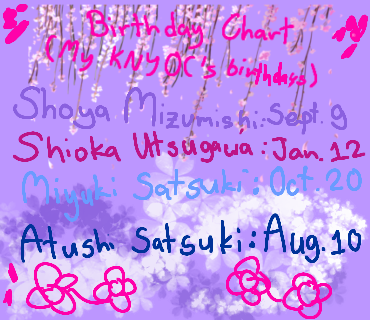 Birthday Chart
(My KNYOC's birthdays)
Shoya Mizumishi: Sept. 9
Shioka Utsugawa: Jan. 12
Miyuki Satsuki: Oct. 20
Atushi Satsuki: Aug. 10